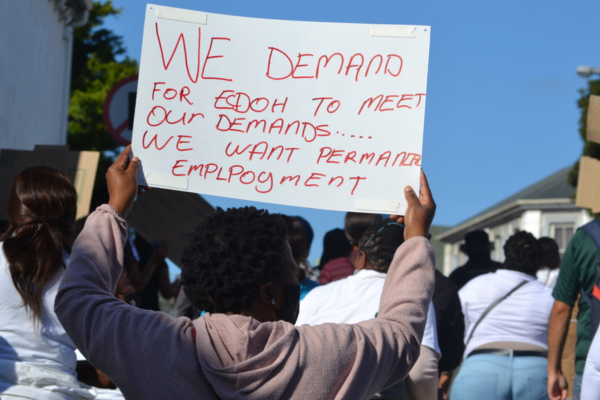 WE DEMAND
FOR EGDOH TO MEET
OUR DEMANDS.....
WE WANT PERMANER
EMPLPOYMENT